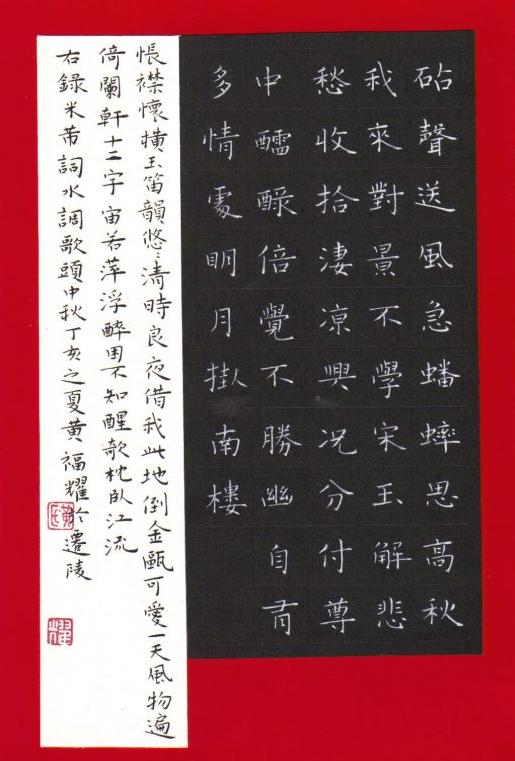 砧聲送風急蟠蟀思高秋
我來對景不學宋玉解悲
愁收拾淒涼興況分付尊
中醽醁倍覺不勝幽自有
多情處明月掛南樓
悵襟懷橫玉笛韻悠〻清時良夜借我此地倒金甌可愛一天風物遍
倚闌軒十二宇宙若萍浮醉困不知醒欹枕臥江流
右錄米芾詞水調歌頭中秋丁亥之夏黃福耀於遷陵